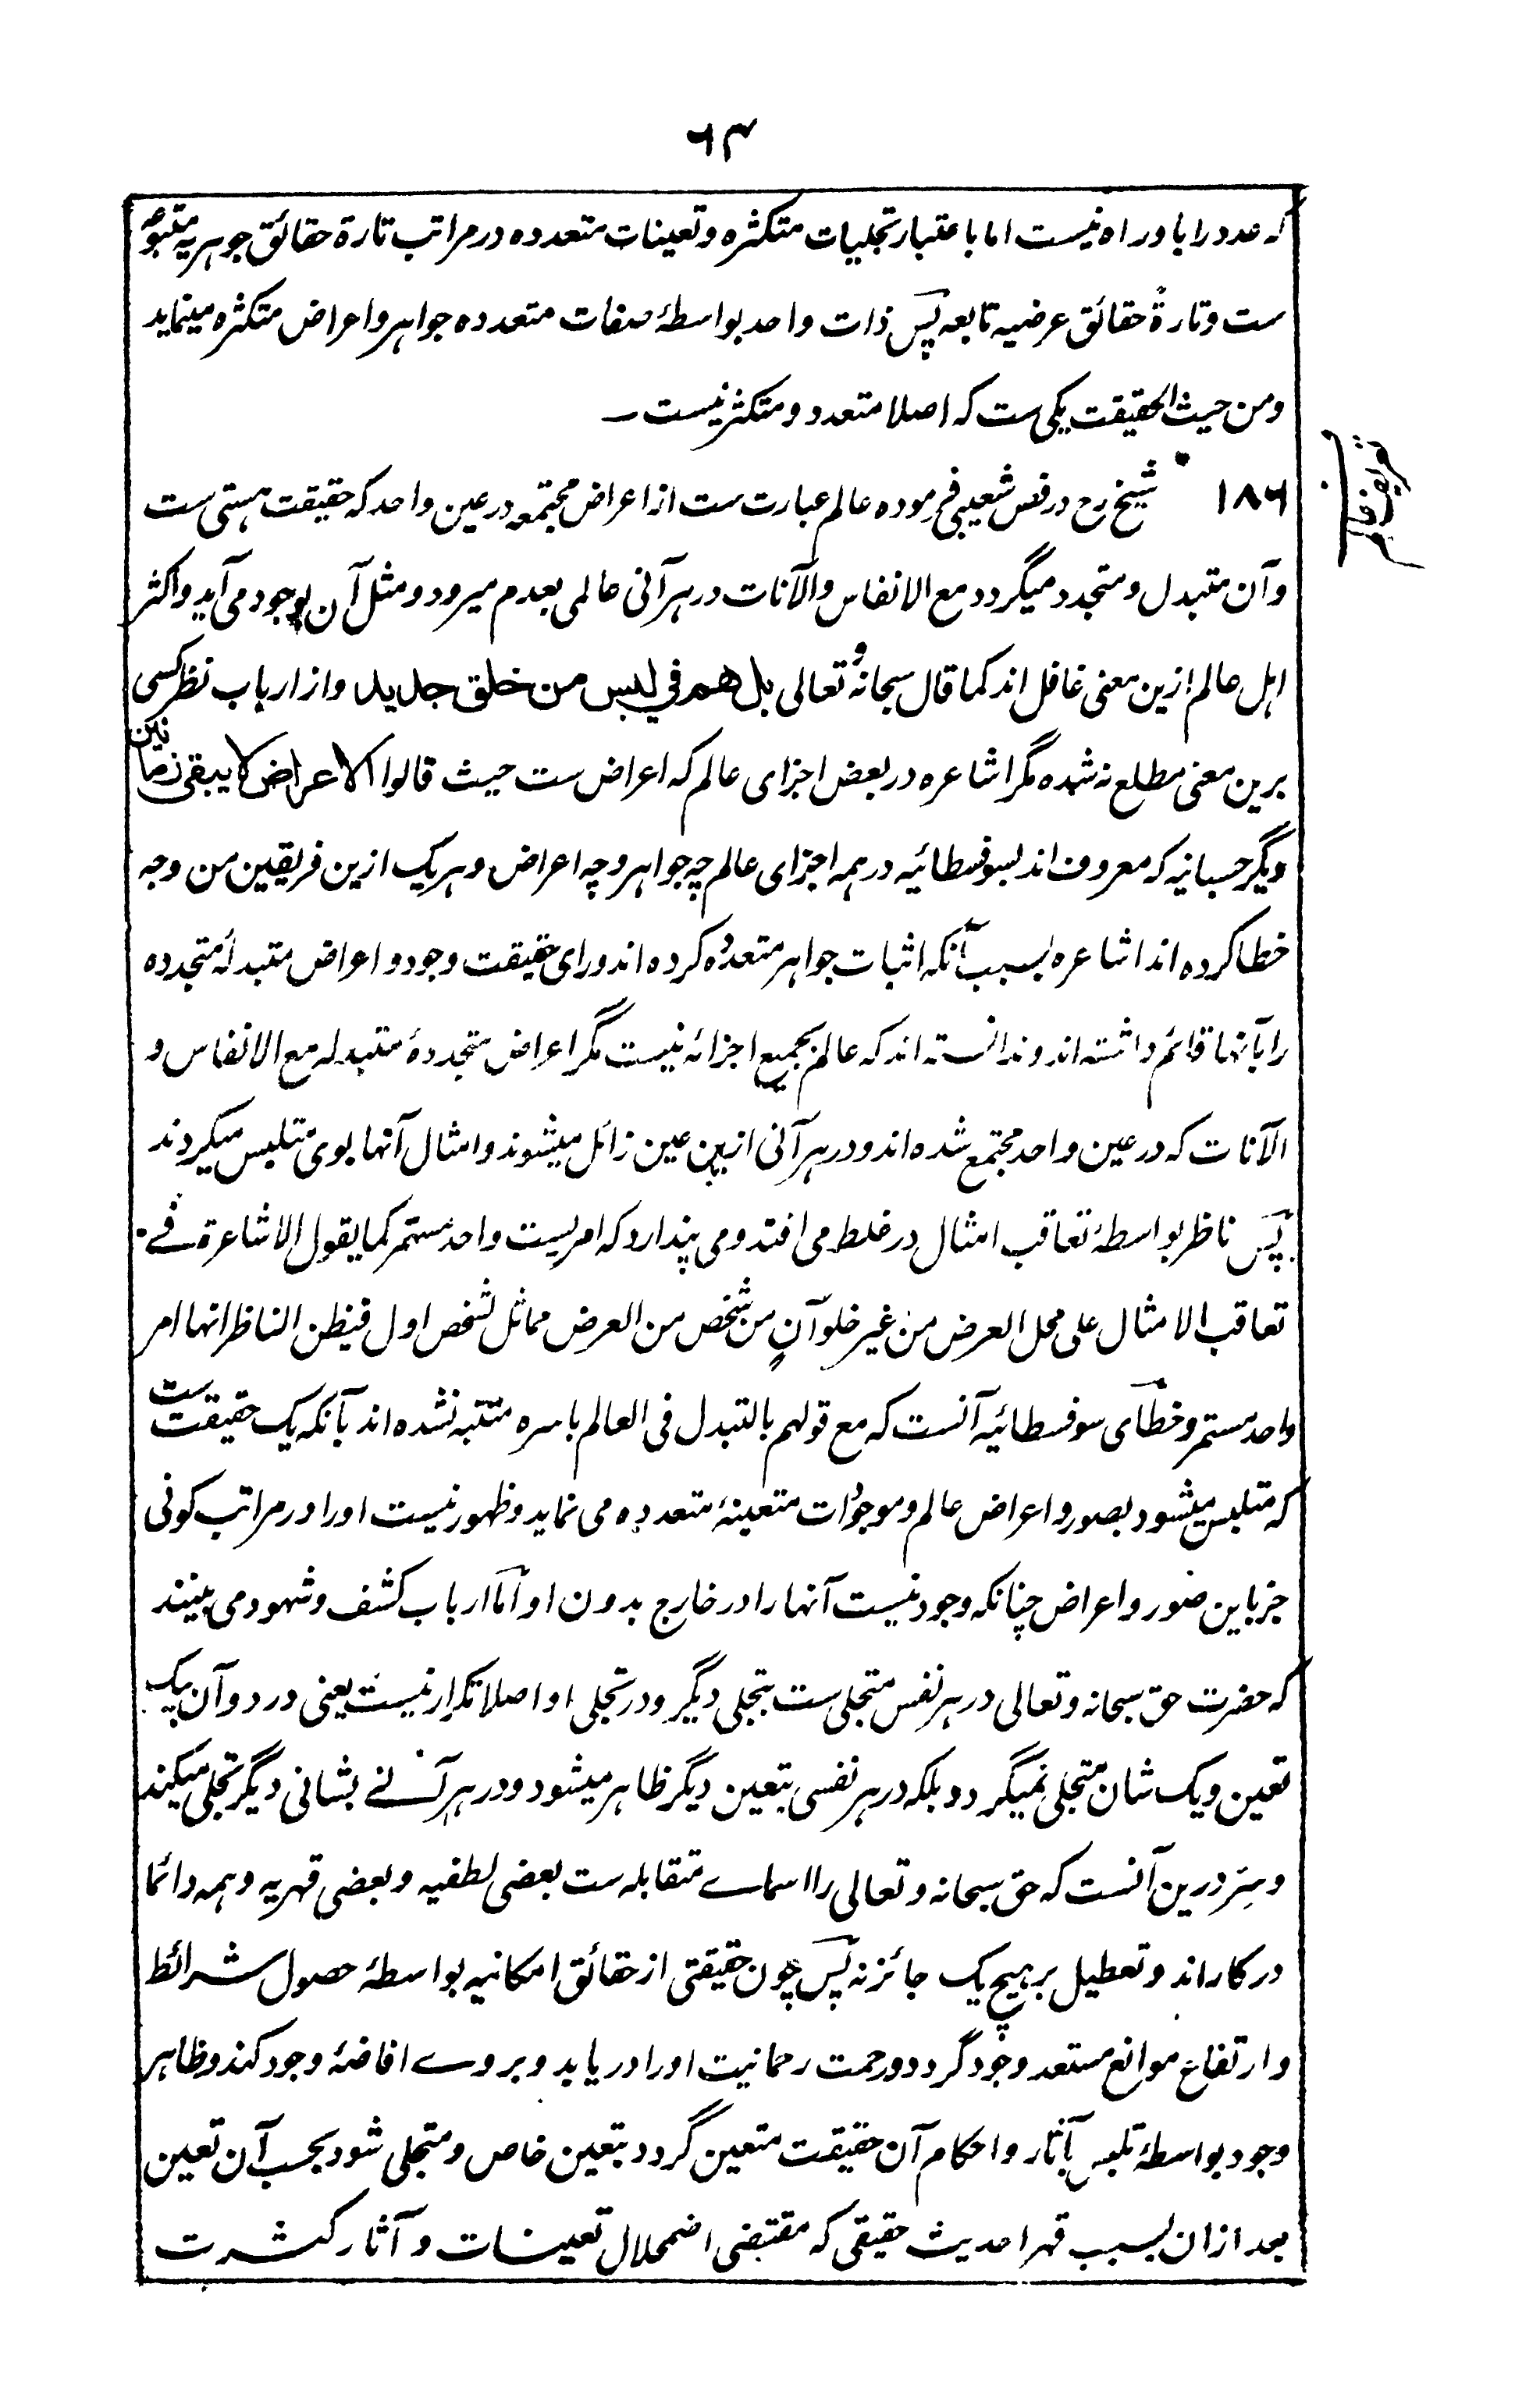 ۶۴
که عدد را باو راه نیست اما باعتبار تجلیات متکثره و تعینات متعدده در مراتب تارة حقائق جوهریه متبوعه
ست و تارةً حقائق عرضیه تابعه پس ذات واحد بواسطهٔ صفات متعدده جواهر و اعراض متکثره مینماید
و من حیث الحقیقت یکی ست که اصلا متعدد و متکثر نیست ـ
۱۸۶ شیخ رح در فص شعیبی فرموده عالم عبارت ست از اعراض مجتمعه در عین واحد که حقیقت هستی ست
و آن متبدل و متجدد میگردد مع الانفاس والآنات در هر آنی عالمی بعدم میرود و مثل آن بوجود می آید و اکثر
اهل عالم ازین معنی غافل اند کما قال سبحانه و تعالی بل هم فی لبس من خلق جدید و از ارباب نظر کسی
برین معنی مطلع نه شده مگر اشاعره در بعض اجزای عالم که اعراض ست حیث قالوا الاعراض لا یبقی زمانین
دیگر حسبانیه که معروف اند بسوفسطائیه در همه اجزای عالم چه جواهر و چه اعراض و هر یک ازین فریقین من وجه
خطا کرده اند اشاعره بسبب آنکه اثبات جواهر متعدده کرده اند ورای حقیقت وجود و اعراض متبدلهٔ متجدده
را بآنها قائم داشته اند و ندانسته اند که عالم بجمیع اجزائه نیست مگر اعراض متجددهٔ متبدله مع الانفاس و
الآنات که در عین واحد مجتمع شده اند و در هر آنی ازین عین زائل میشوند و امثال آنها بوی متلبس میگردند
پس ناظر بواسطهٔ تعاقب امثال در غلط می افتد و می پندارد که امریست واحد مستمر کما یقول الاشاعرة فے
تعاقب الامثال علی محل العرض من غیر خلو آنٍ من شخص من العرض مماثل لشخص اول فیظن الناظر انها امر
واحد مستمر و خطای سوفسطائیه آنست که مع قولهم بالتبدل فی العالم باسره متنبه نشده اند بآنکه یک حقیقت ست
که متلبس میشود بصور و اعراض عالم و موجودات متعینهٔ متعدده می نماید و ظهور نیست او را در مراتب کونی
جز باین صور و اعراض چنانکه وجود نیست آنها را در خارج بدون او اما ارباب کشف و شهود می بینند
که حضرت حق سبحانه و تعالی در هر نفس متجلی ست بتجلی دیگر و در تجلی او اصلا تکرار نیست یعنی در دو آن بیک
تعین و یک شان متجلی نمیگردد بلکه در هر نفسی بتعین دیگر ظاهر میشود و در هر آنے بشانی دیگر تجلی میکند
و سِرّ درین آنست که حق سبحانه و تعالی را اسماے متقابله ست بعضی لطفیه و بعضی قهریه و همه دائما
در کار اند و تعطیل بر هیچ یک جائز نه پس چون حقیقتی از حقائق امکانیه بواسطهٔ حصول شرائط
و ارتفاع موانع مستعد وجود گردد و رحمت رحمانیت او را دریابد و بروے افاضهٔ وجود کند و ظاهر
وجود بواسطهٔ تلبس بآثار و احکام آن حقیقت متعین گردد بتعین خاص و متجلی شود بحسب آن تعین
بعد ازان بسبب قهر احدیت حقیقی که مقتضی اضمحلال تعینات و آثار کثرت